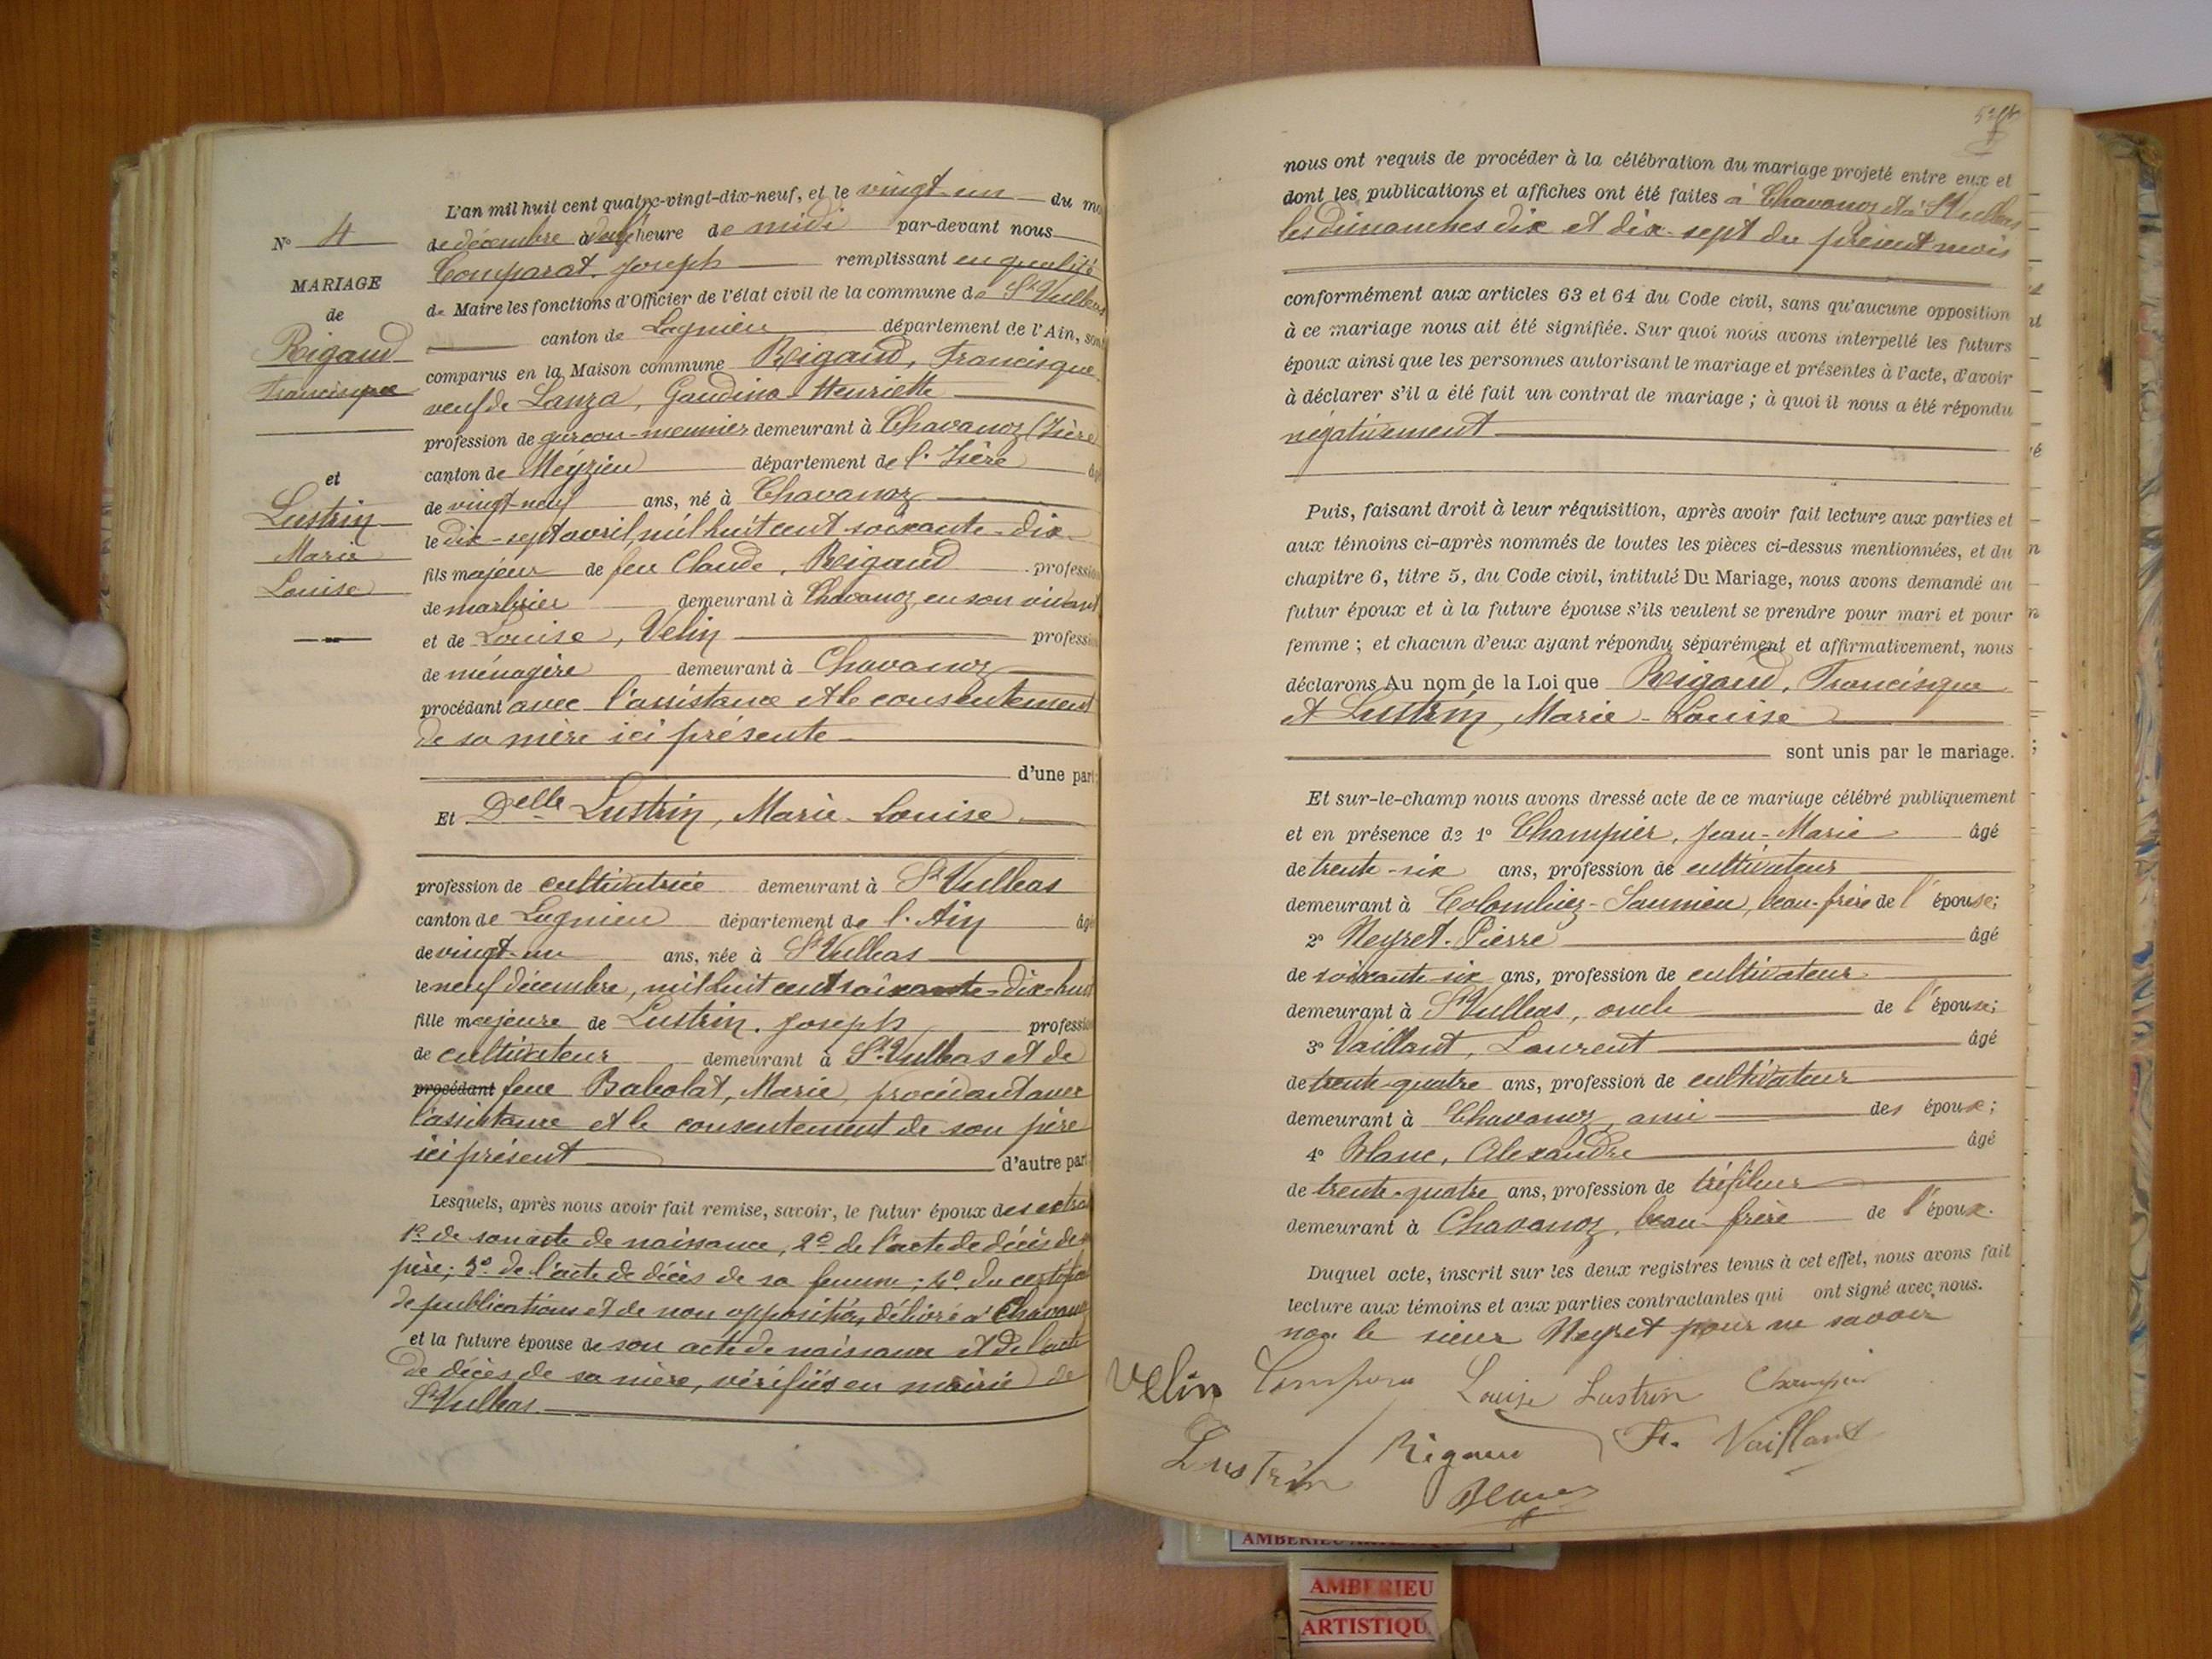 N° 4
MARIAGE
de
Rigaud
Francisque
et
Lustrin
Marie
Louise
L'an mil huit cent quatre-vingt-dix-neuf, et le vingt-un du mo
de décembre à heure de midi par-devant nous
Comparat, Joseph remplissant en qualité
de Maire les fonctions d'Officier de l'état civil de la commune de St Vulbas
canton de Lagnieu département de l'Ain, sont
comparus en la Maison commune Rigaud, Francisque
veuf de Lanza, Gaudina-Henriette
profession de garçon-meunier demeurant à Chavanoz (Isère
canton de Meyzieu département de l'Isère âgé
de vingt-neuf ans, né à Chavanoz
le dix-sept avril, mil huit cent soixante-dix
fils majeur de feu Claude, Rigaud profession
de marbrier demeurant à Chavanoz, en son vivant
et de Louise, Velin profession
de ménagère demeurant à Chavanoz
procédant avec l'assistance et le consentement
de sa mère ici présente
d'une part
Et Delle Lustrin, Marie-Louise
profession de cultivatrice demeurant à St Vulbas
canton de Lagnieu département de l'Ain âgé
de vingt-un ans, née à St Vulbas
le neuf décembre, mil huit cent soixante-dix-huit
fille majeure de Lustrin, Joseph profession
de cultivateur demeurant à St Vulbas et de
procédant feue Babolat, Marie, procédant avec
l'assistance et le consentement de son père
ici présent d'autre part
Lesquels, après nous avoir fait remise, savoir, le futur époux des extra
1° de son acte de naissance, 2° de l'acte de décès de
père; 3° de l'acte de décès de sa femme; 4° du certifica
de publications et de non opposition délivré à Chavanoz
et la future épouse de son acte de naissance et de l'acte
de décès de sa mère, vérifiés en mairie de
St Vulbas.
nous ont requis de procéder à la célébration du mariage projeté entre eux et
dont les publications et affiches ont été faites à Chavanoz et à St Vulbas
les dimanches dix et dix-sept du présent mois
conformément aux articles 63 et 64 du Code civil, sans qu'aucune opposition
à ce mariage nous ait été signifiée. Sur quoi nous avons interpellé les futurs
époux ainsi que les personnes autorisant le mariage et présentes à l'acte, d'avoir
à déclarer s'il a été fait un contrat de mariage ; à quoi il nous a été répondu
négativement
Puis, faisant droit à leur réquisition, après avoir fait lecture aux parties et
aux témoins ci-après nommés de toutes les pièces ci-dessus mentionnées, et du
chapitre 6, titre 5, du Code civil, intitulé Du Mariage, nous avons demandé au
futur époux et à la future épouse s'ils veulent se prendre pour mari et pour
femme ; et chacun d'eux ayant répondu séparément et affirmativement, nous
déclarons Au nom de la Loi que Rigaud, Francisque
et Lustrin, Marie-Louise
sont unis par le mariage.
Et sur-le-champ nous avons dressé acte de ce mariage célébré publiquement
et en présence de 1° Champier, Jean-Marie âgé
de trente-six ans, profession de cultivateur
demeurant à Colombier-Saunieu, beau-frère de l'épouse;
2° Neyret, Pierre âgé
de soixante-six ans, profession de cultivateur
demeurant à St Vulbas, oncle de l'épouse;
3° Vaillant, Laurent âgé
de trente-quatre ans, profession de cultivateur
demeurant à Chavanoz, ami des époux;
4° Blanc, Alexandre âgé
de trente-quatre ans, profession de tréfileur
demeurant à Chavanoz, beau-frère de l'époux.
Duquel acte, inscrit sur les deux registres tenus à cet effet, nous avons fait
lecture aux témoins et aux parties contractantes qui ont signé avec nous.
non le sieur Neyret pour ne savoir
Velin Louise Lustrin Champier
Lustrin Rigaud Vaillant
Blanc
AMBERIEU
ARTISTIQU